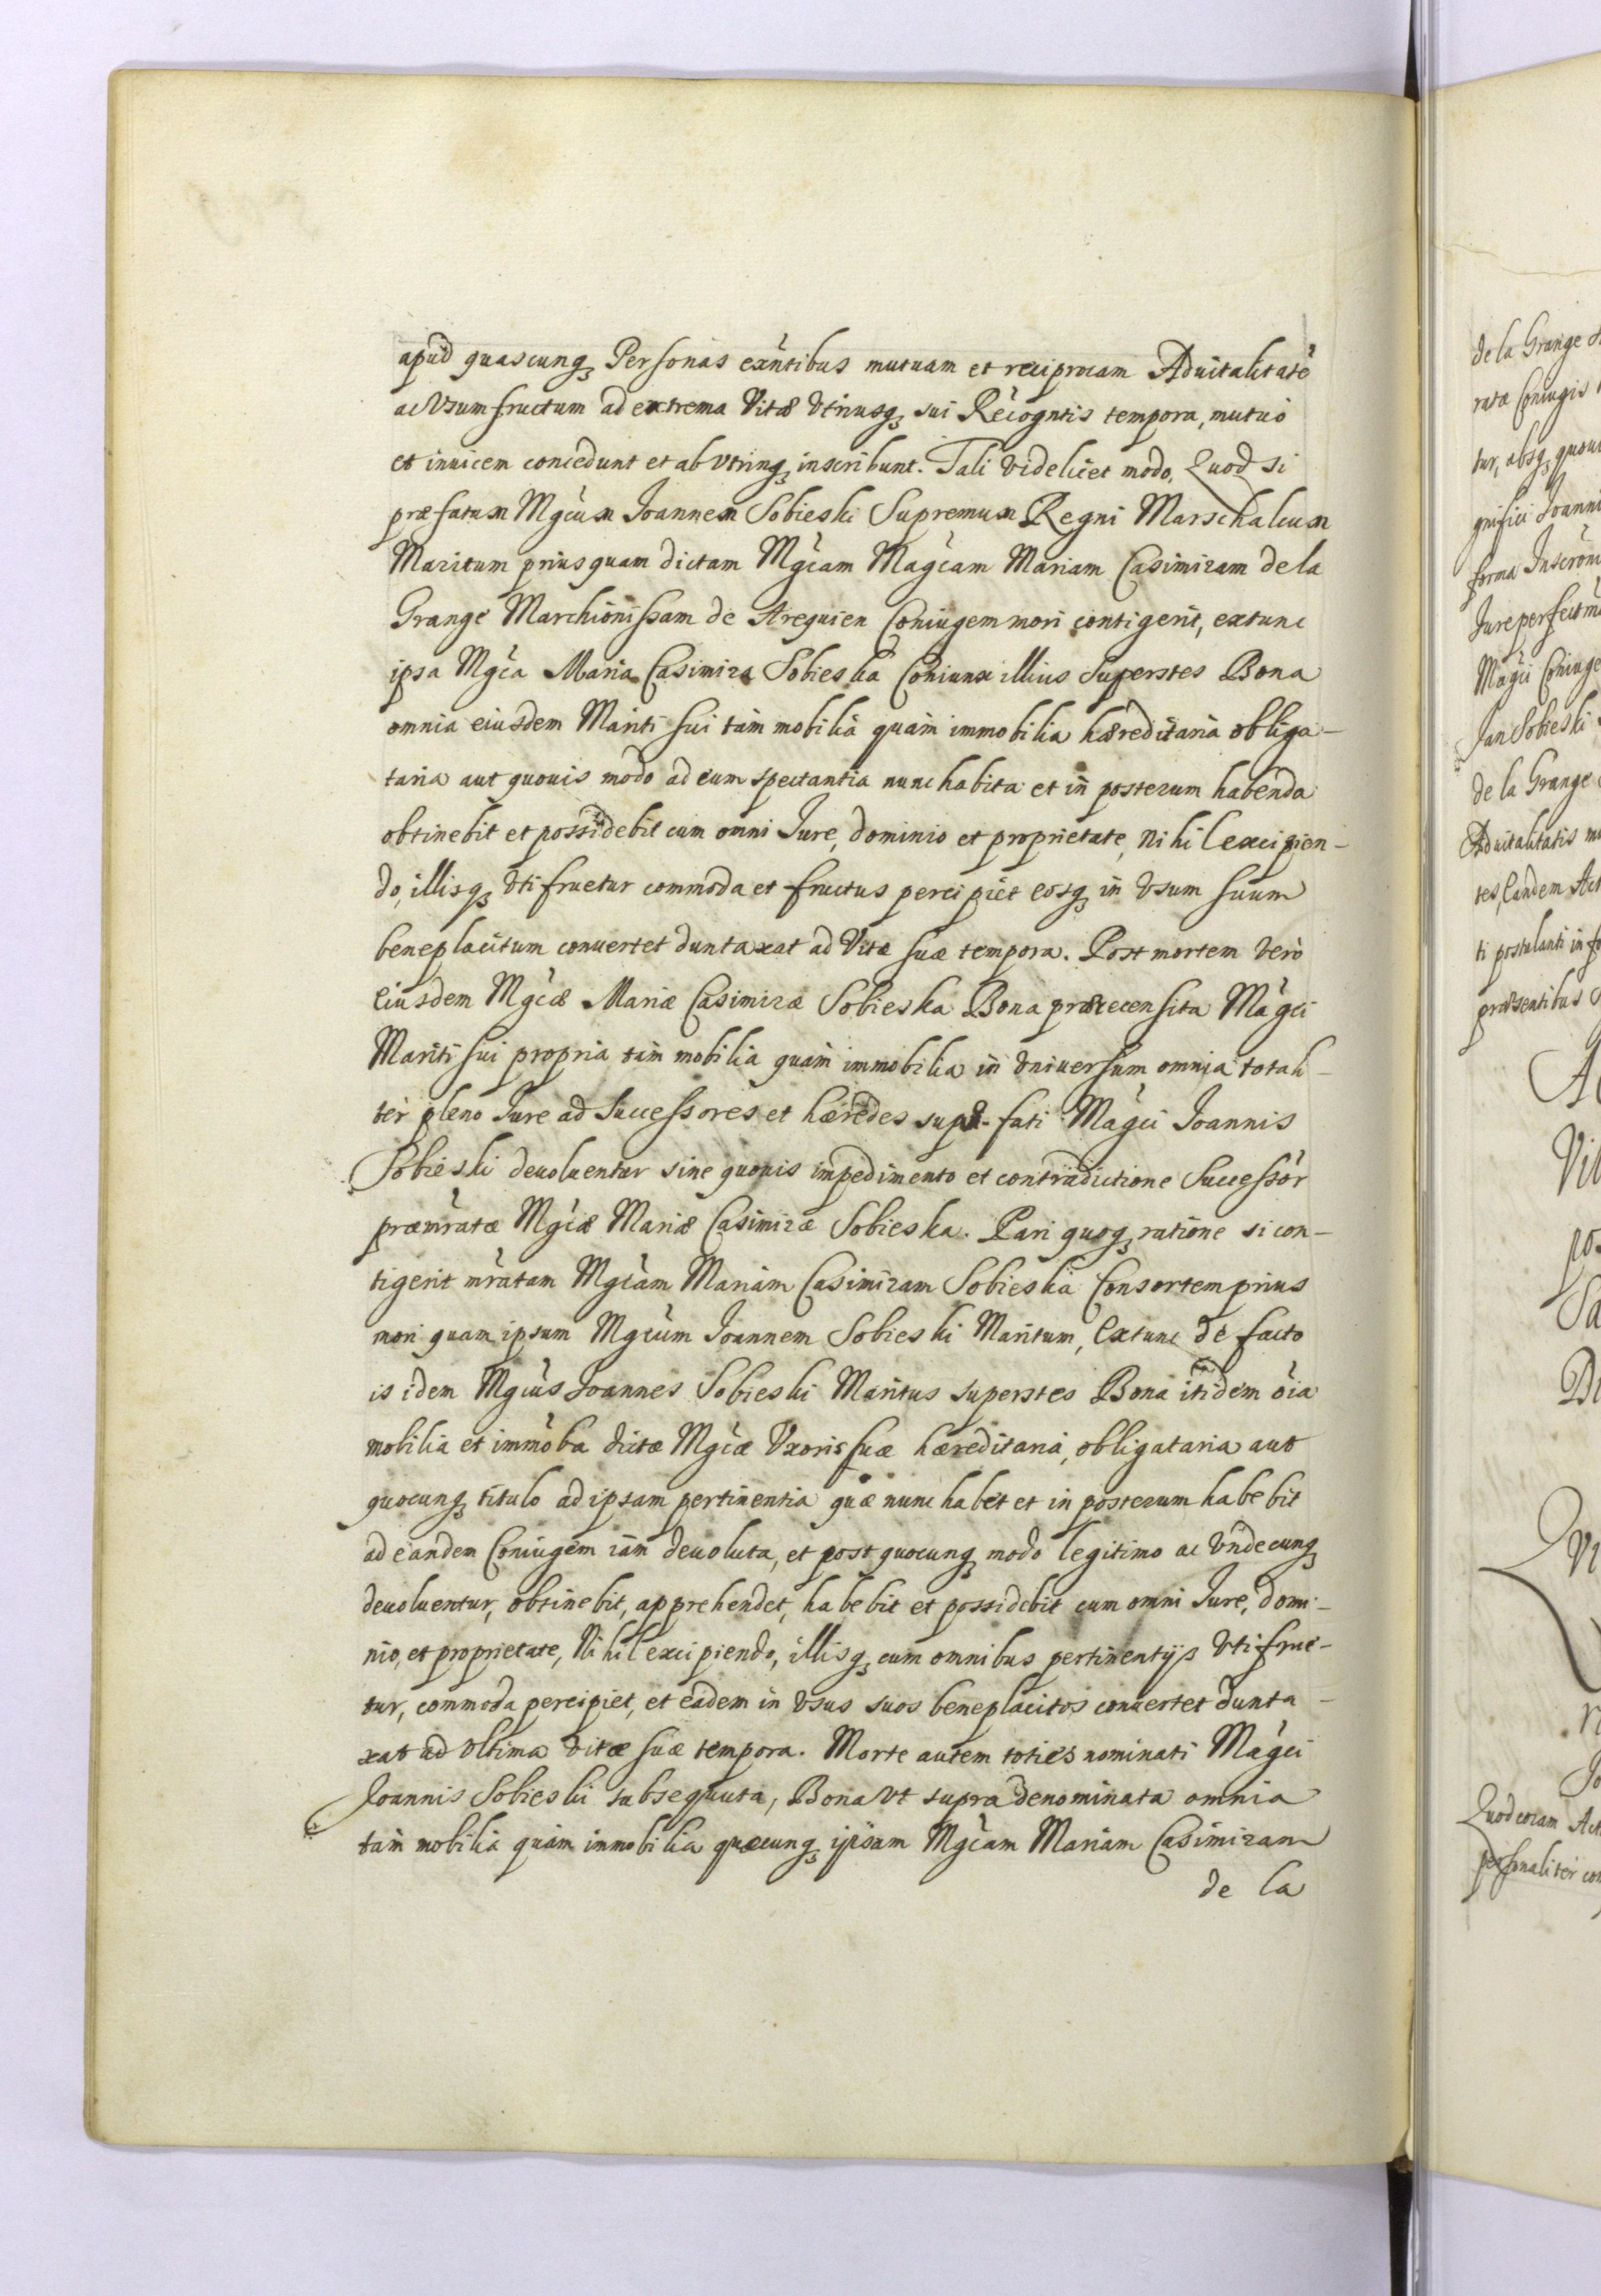 apud quascunq₃ Personas exñtibus mutuam et reciprocam Aduitalitatē
ac Vsumfructum ad extrema Vitæ Vtriusq₃ sui Recogntis tempora, mutuò
et inuicem concedunt et ab vtrinq₃ inscribunt. Tali videlicet modo, Quod si
præfatum Mgcum Joannem Sobieski Supremum Regni Marschalcum
Maritum priusquam dictam Mgcam Magcam Mariam Casimiram de la
Grange Marchionissam de Arequien Coniugem mori contigerit, extunc
ipsa Mgca Maria Casimira Sobieska Coniunx illius Superstes Bona
omnia eiusdem Mariti sui tàm mobilia quàm immobilia hæreditaria obliga-
taria aut quouis modo ad eum spectantia nunc habita et in posterum habenda
obtinebit et possidebit cum omni Jure, dominio et proprietate, Nihil excipien-
do, illisq₃ vtifruetur commoda et fructus percipiet eosq₃ in vsum suum
beneplacitum conuertet duntaxat ad Vitæ suæ tempora. Post mortem verò
Eiusdem Mgcæ Mariæ Casimiræ Sobieska Bona præecensita Magci
Mariti sui propria tàm mobilia quàm immobilia in vniuersum omnia totali-
ter pleno Jure ad Successores et hæredes supra-fati Magci Joannis
Sobieski deuoluentur sine quouis impedimento et contradictione Successor
prænratæ Mgcæ Mariæ Casimiræ Sobieska. Pari quoq₃ ratione si con-
tigerit nratam Mgcam Mariam Casimiram Sobieska Consortem prius
mori quam ipsum Mgcum Joannem Sobieski Maritum, Extunc de facto
is idem Mgcus Joannes Sobieski Maritus superstes Bona itidem oia
mobilia et immoba dictæ Mgcæ Vxoris suæ hæreditaria, obligataria aut
quocunq₃ titulo ad ipsam pertinentia quæ nunc habet et in posterum habebit
ad eandem Coniugem iàm deuoluta, et post quocunq₃ modo legitimo ac vndecunq₃
deuoluentur, obtinebit, apprehendet, habebit et possidebit cum omni Jure, domi-
nio, et proprietate, Nihil excipiendo, illisq₃ cum omnibus pertinentijs vtifrue-
tur, commoda percipiet, et eadem in vsus suos beneplacitos conuertet dunta-
xat ad vltima vitæ suæ tempora. Morte autem toties nominati Magci
Joannis Sobieski subsequuta, Bona vt supra denominata omnia
tàm mobilia quàm immobilia quæcunq₃ ipsam Mgcam Mariam Casimiram
de la
de la Grange
ratæ Coniugis
tur, absq₃
gnifici Joanni
forma
Jure
Magci Coniuge
Jan Sobieski
de la Grange
Aduitalitatis
tes, Eandem
ti postulanti in
præsentibus
Quod coram
personaliter